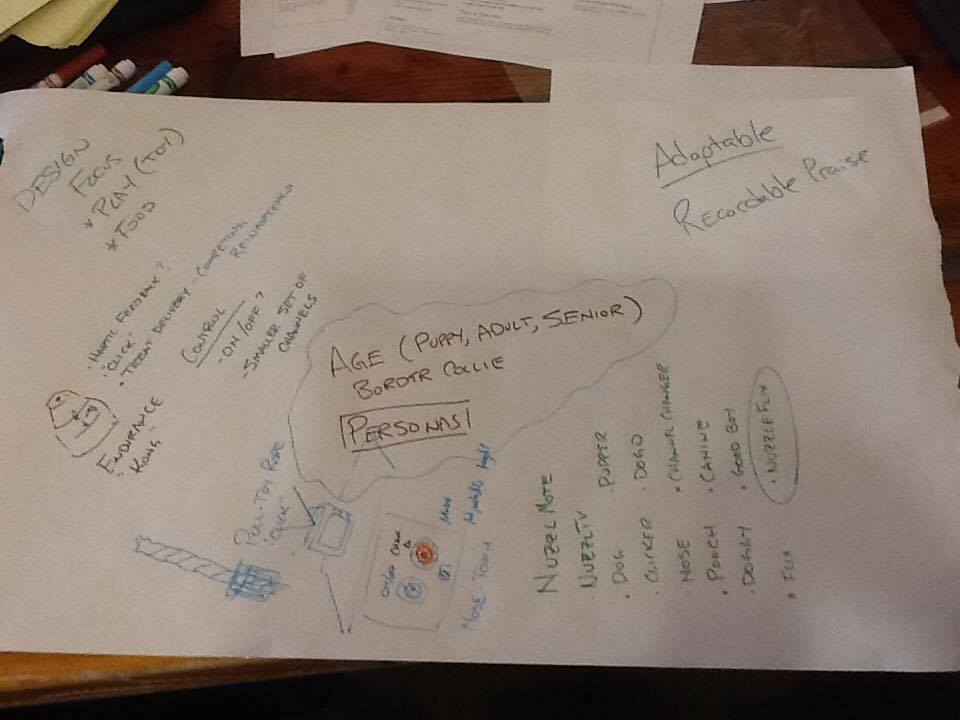 DESIGN
FOCUS
* PLAY (TOY)
* FOOD
Adaptable
Recordable Praise
· HAPTIC FEEDBACK?
· "CLICK"
· TREAT DELIVERY - COMPETING REINFORCEMENT
CONTROL
- ON/OFF?
- SMALLER SET OF
CHANNELS
ENDURANCE
"KONG"
AGE (PUPPY, ADULT, SENIOR)
BORDR COLLIE
PERSONAS
PULL-TOY ROPE
"CLICK"
ON/OFF
CHAN
NOSE-TOUCH
Adjustable height
· NUZZL MOTE
· NUZZL TV
· DOG
· CLICKER
· NOSE
· POOCH
· DOGGY
· FLIX
· PUPPER
· DOGO
· CHANNEL CHANGER
· CANINE
· GOOD BOY
· NUZZLEFLIX